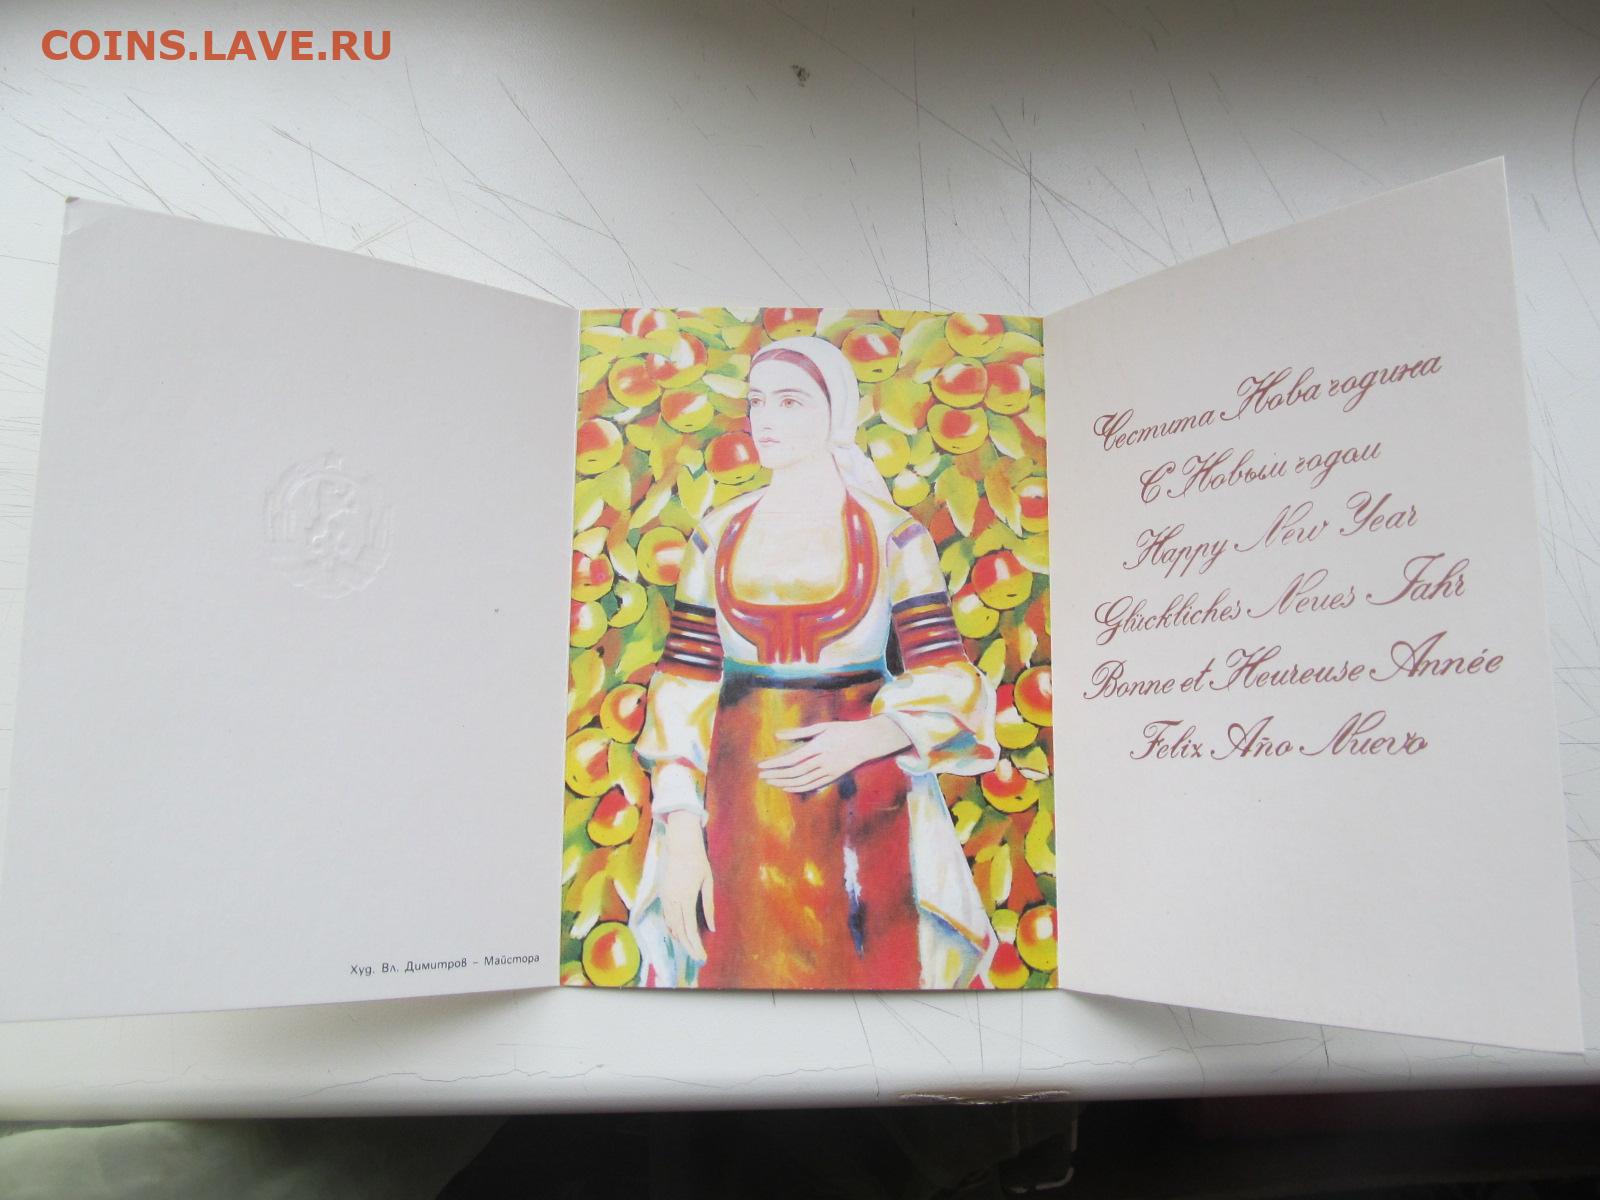 COINS.LAVE.RU
Худ. Вл. Димитров - Майстора
Честита Нова година
С Новым годом
Happy New Year
Glückliches Neues Jahr
Bonne et Heureuse Année
Feliz Año Nuevo